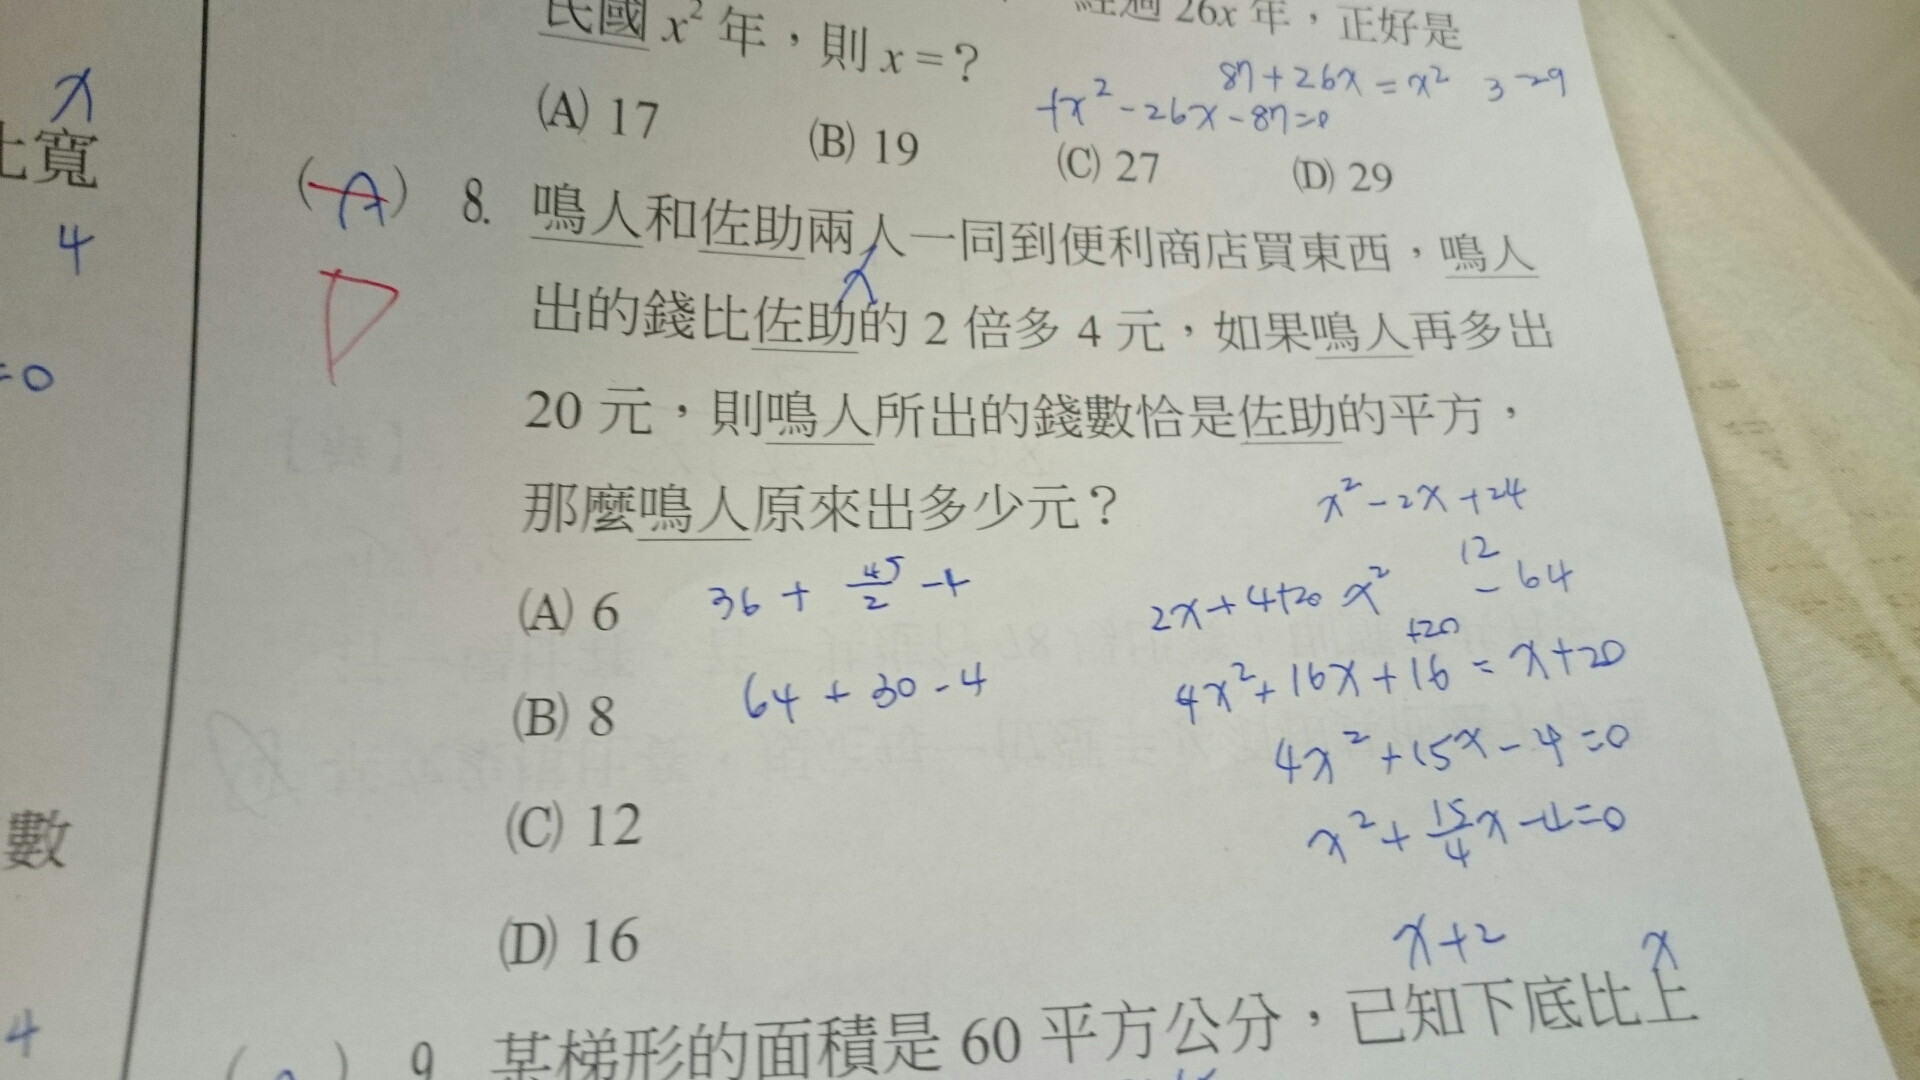 民國 x² 年，則 x = ？ 經過 26x 年，正好是
87+26x = x² 3 -29
+x²-26x-87=0
(A) 17 (B) 19 (C) 27 (D) 29
x
比寬
4
=0
數
4
(A) 8. 鳴人和佐助兩人一同到便利商店買東西，鳴人
D
x
出的錢比佐助的 2 倍多 4 元，如果鳴人再多出
20 元，則鳴人所出的錢數恰是佐助的平方，
那麼鳴人原來出多少元？
x²-2x+24
(A) 6
36 + 45/2 -4
2x+4+20 x²
12
-64
+20
(B) 8
64 + 30 - 4
4x²+16x+16 = x+20
4x²+15x-4=0
(C) 12
x²+15/4x-4=0
(D) 16
x+2 x
( ) 9. 某梯形的面積是 60 平方公分，已知下底比上